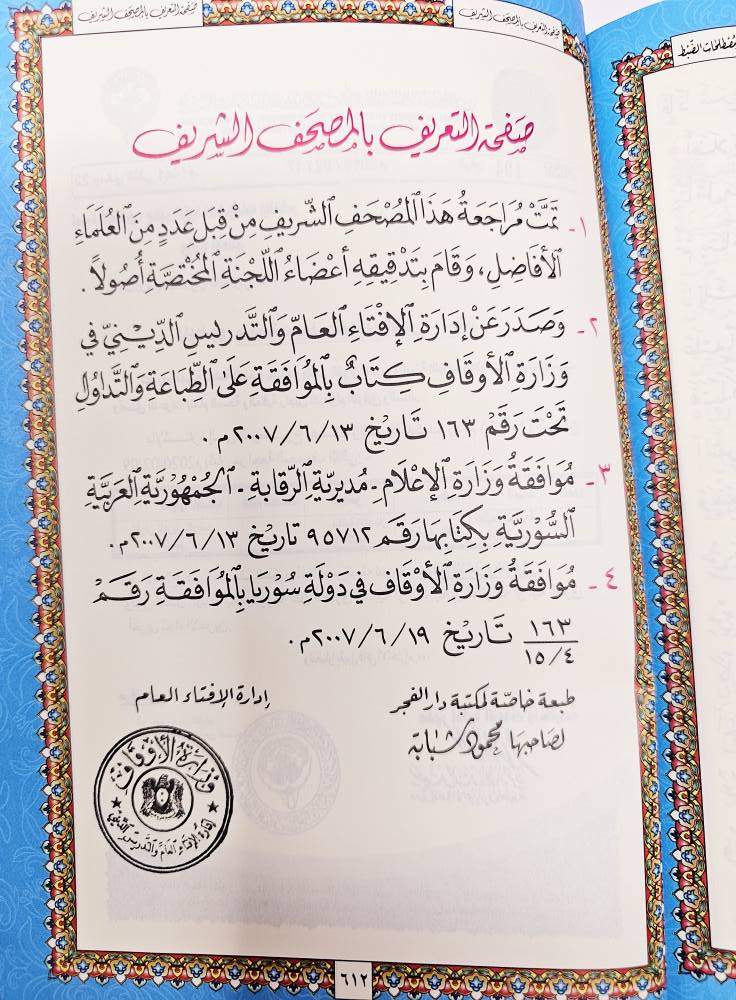 صفحة التعريف بالمصحف الشريف
صفحة التعريف بالمصحف الشريف
مصطلحات الضبط
صَفحَة التَعريف بِالمصحَف الشريف
١- تَمَّتْ مُرَاجَعَةُ هَذَا ٱلْمُصْحَفِ ٱلشَّرِيفِ مِنْ قِبَلِ عَدَدٍ مِنَ ٱلْعُلَمَاءِ
ٱلْأَفَاضِلِ، وَقَامَ بِتَدْقِيقِهِ أَعْضَاءُ ٱللَّجْنَةِ ٱلْمُخْتَصَّةِ أُصُولاً.
٢- وَصَدَرَ عَنْ إِدَارَةِ ٱلْإِفْتَاءِ ٱلْعَامِّ وَٱلتَّدْرِيسِ ٱلدِّينِيِّ فِي
وَزَارَةِ ٱلْأَوْقَافِ كِتَابٌ بِٱلْمُوَافَقَةِ عَلَى ٱلطِّبَاعَةِ وَٱلتَّدَاوُلِ
تَحْتَ رَقَمْ ١٦٣ تَارِيخ ٢٠٠٧/٦/١٣م.
٣- مُوَافَقَةُ وَزَارَةِ ٱلْإِعْلَامِ - مُدِيرِيَّةِ ٱلرِّقَابَةِ - ٱلْجُمْهُورِيَّةِ ٱلْعَرَبِيَّةِ
ٱلسُّورِيَّةِ بِكِتَابِهَا رَقَم ٩٥٧١٢ تاريخ ٢٠٠٧/٦/١٣م.
٤- مُوَافَقَةُ وَزَارَةِ ٱلْأَوْقَافِ فِي دَوْلَةِ سُورِيَا بِٱلْمُوَافَقَةِ رَقَمْ
١٦٣
١٥/٤ تَارِيخ ٢٠٠٧/٦/١٩م.
طبعة خاصّة لمكتبة دار الفجر
لصاحبها محمود شبابة
إدارة الإفتاء العام
وزارة الأوقاف
إدارة الإفتاء العام والتدريس الديني
٦١٢